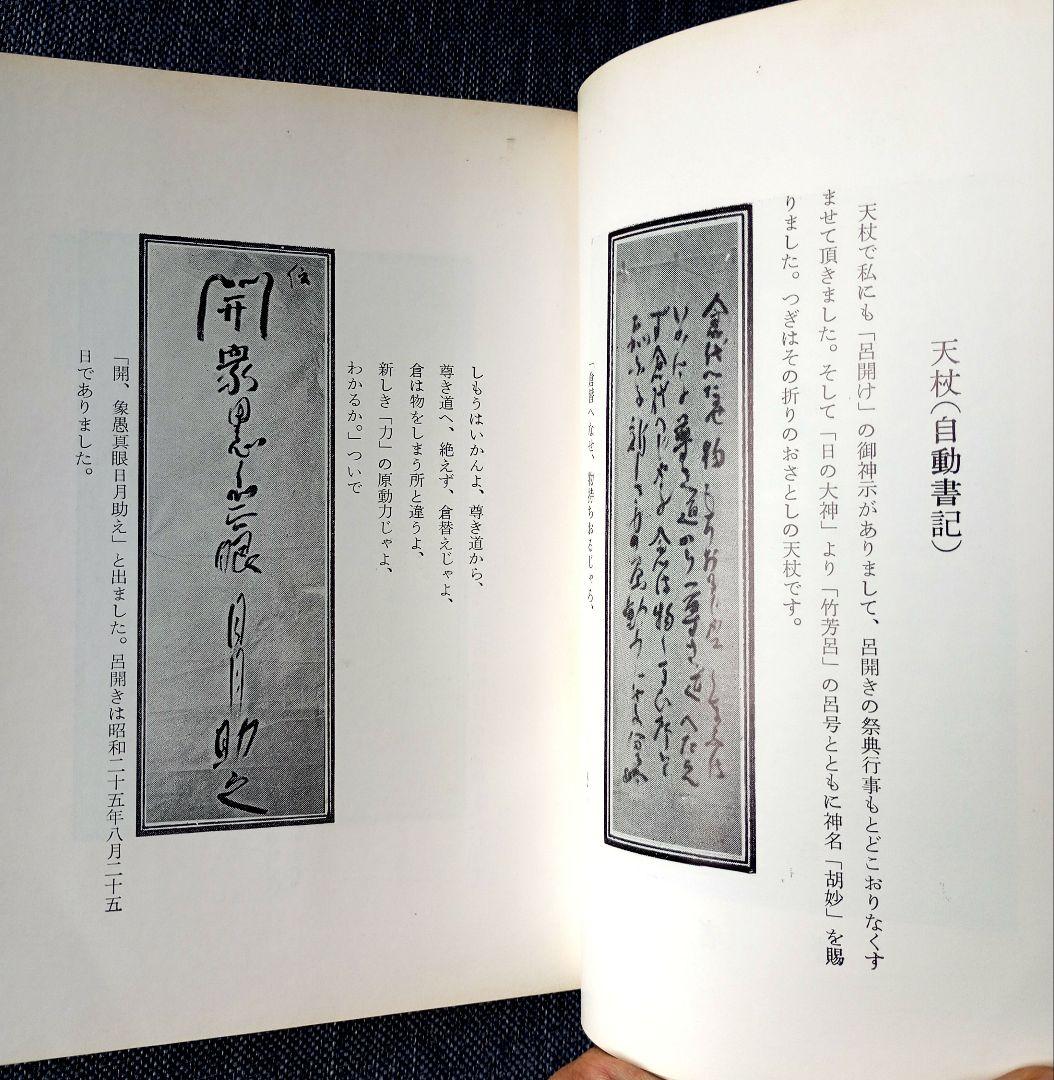 天杖(自動書記)
天杖で私にも「呂開け」の御神示がありまして、呂開きの祭典行事もとどこおりなくす
ませて頂きました。そして「日の大神」より「竹芳呂」の呂号とともに神名「胡妙」を賜
りました。つぎはその折りのおさとしの天杖です。
「倉替へなせ、物持ちおるじゃろ、
しもうはいかんよ、尊き道から、
尊き道へ、絶えず、倉替えじゃよ、
倉は物をしまう所と違うよ、
新しき「力」の原動力じゃよ、
わかるか。」ついで
開衆愚真眼日月助之
「開、象愚真眼日月助え」と出ました。呂開きは昭和二十五年八月二十五
日でありました。